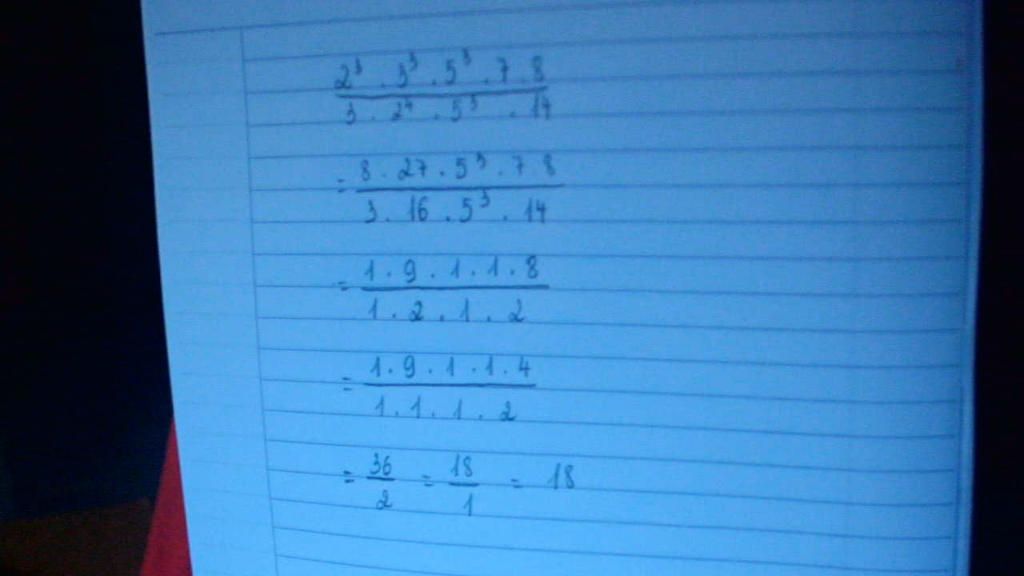 2³ . 3³ . 5³ . 7 . 8
3 . 2⁴ . 5³ . 14
= 8 . 27 . 5³ . 7 . 8
3 . 16 . 5³ . 14
= 1 . 9 . 1 . 1 . 8
1 . 2 . 1 . 2
= 1 . 9 . 1 . 1 . 4
1 . 1 . 1 . 2
= 36/2 = 18/1 = 18